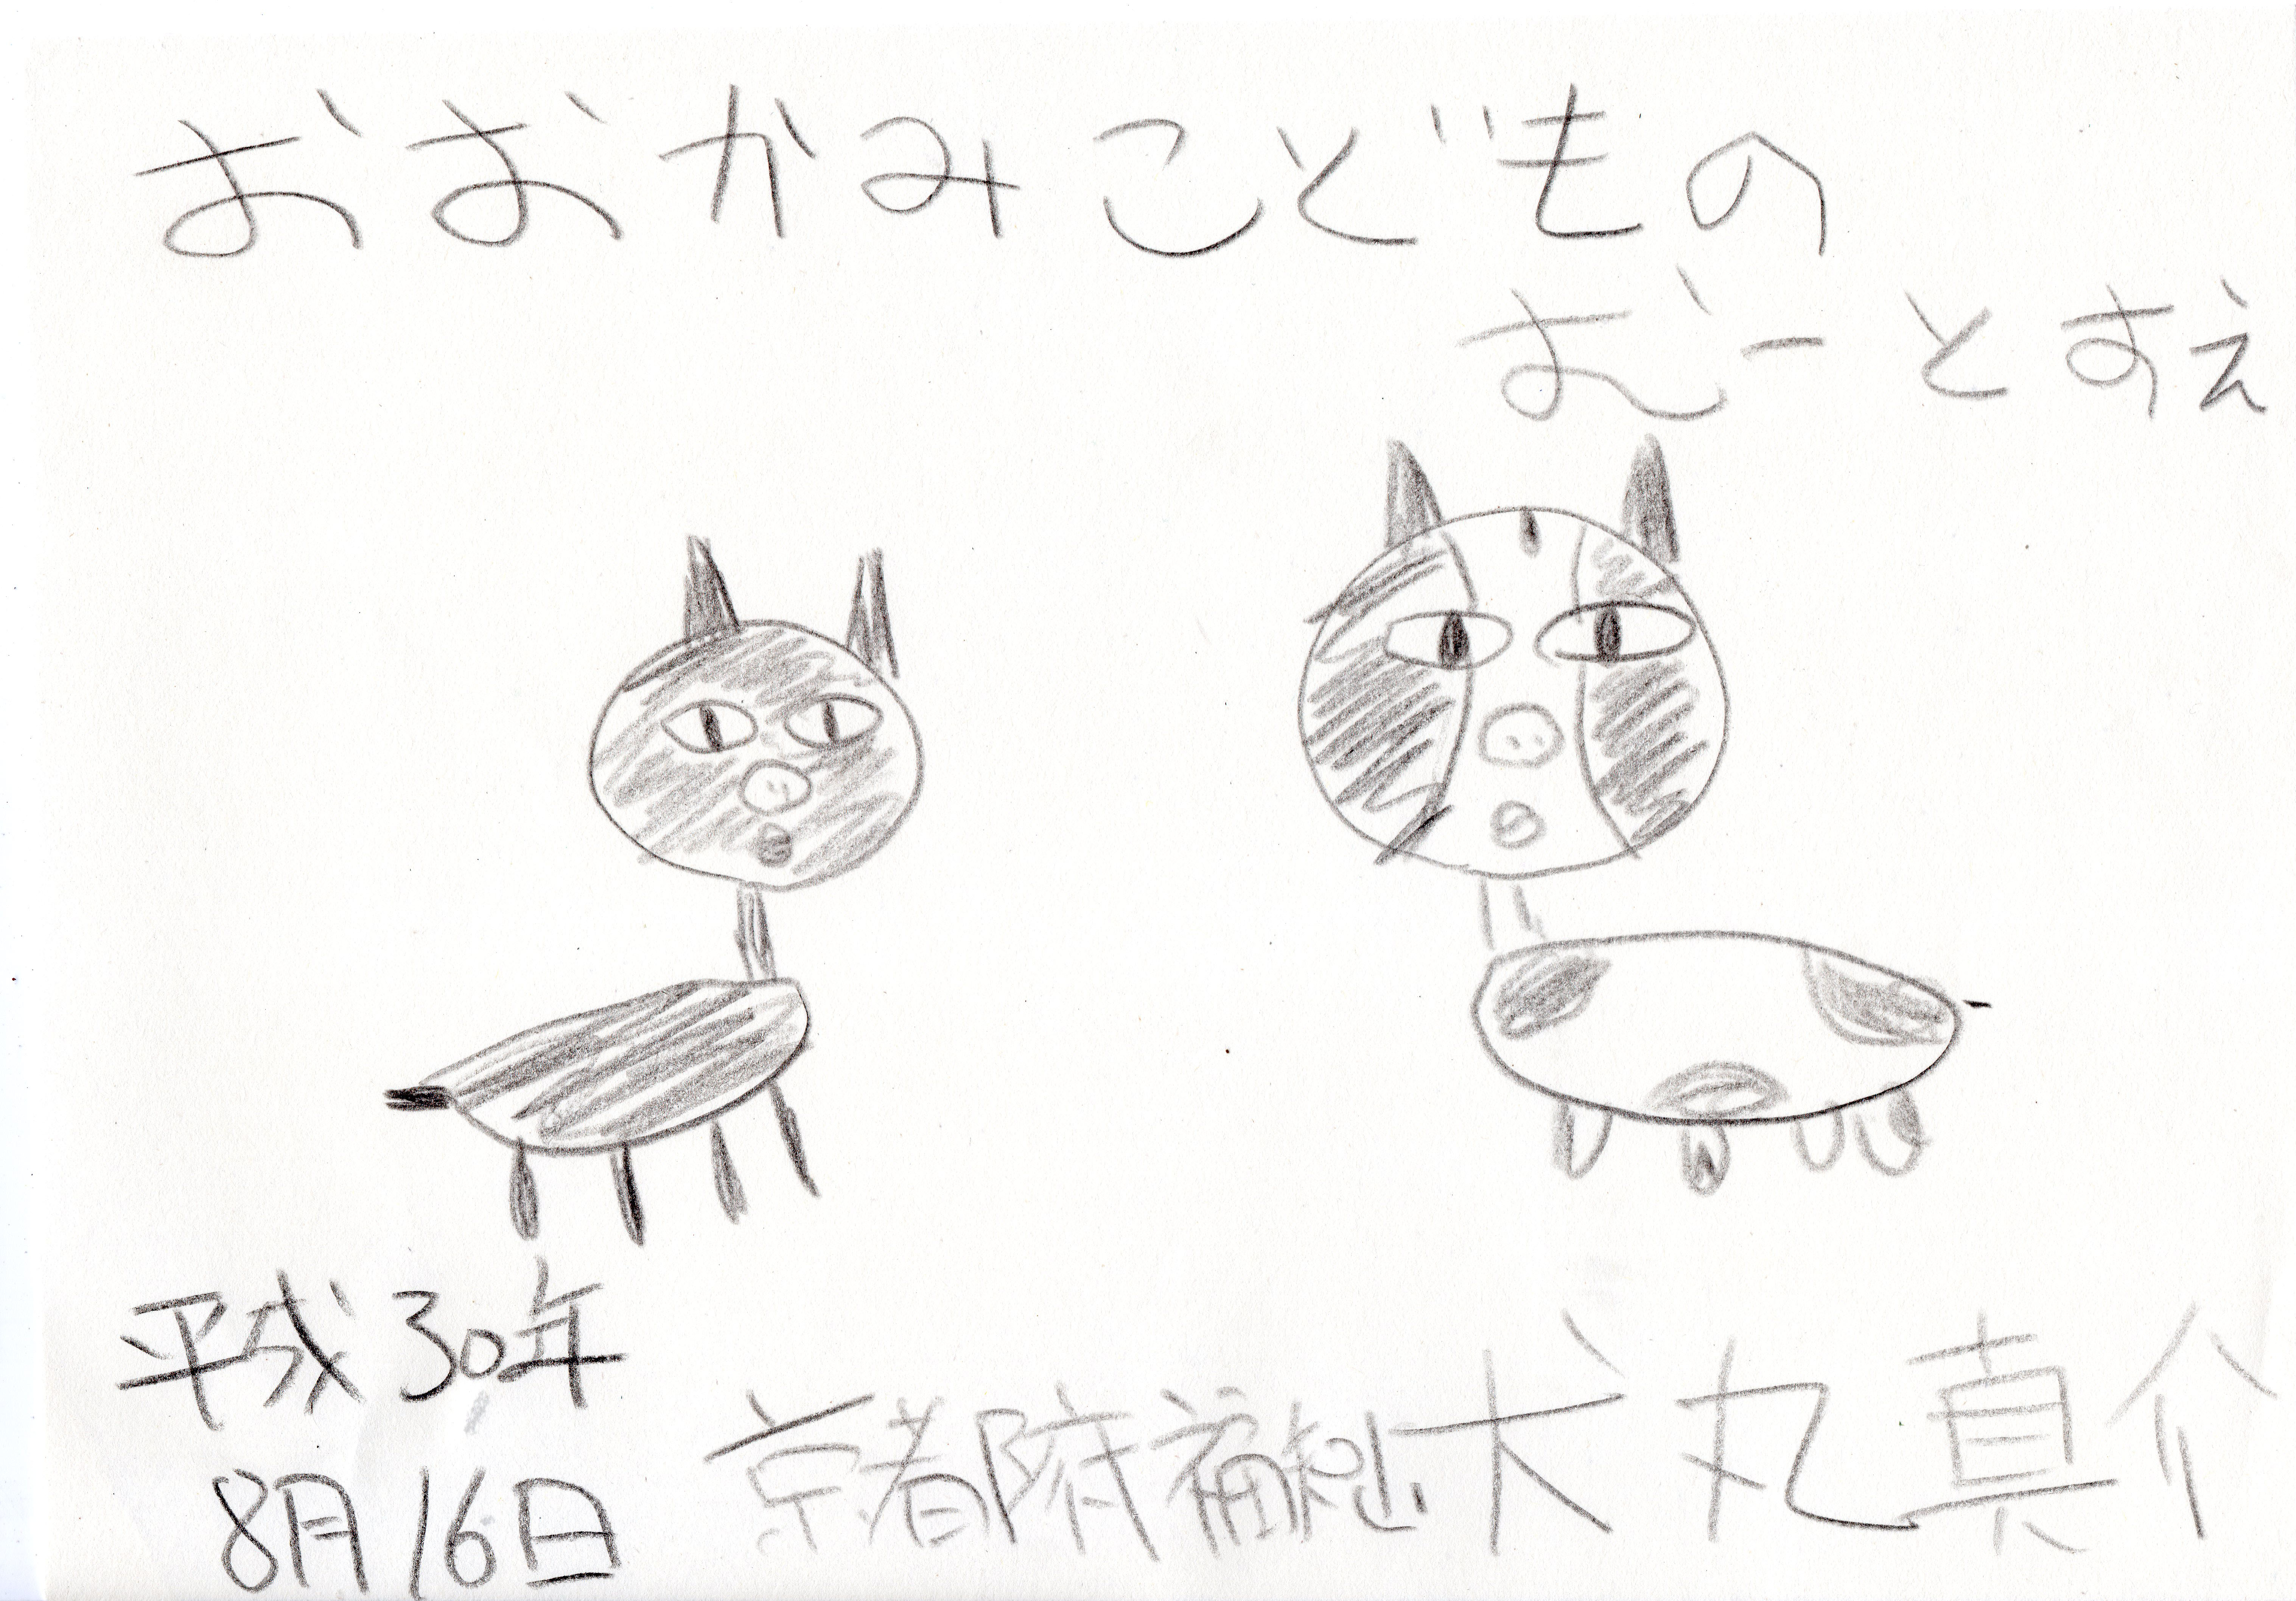 おおかみこどもの
むーとすえ
平成30年
8月16日
京都府福知山 犬丸真介